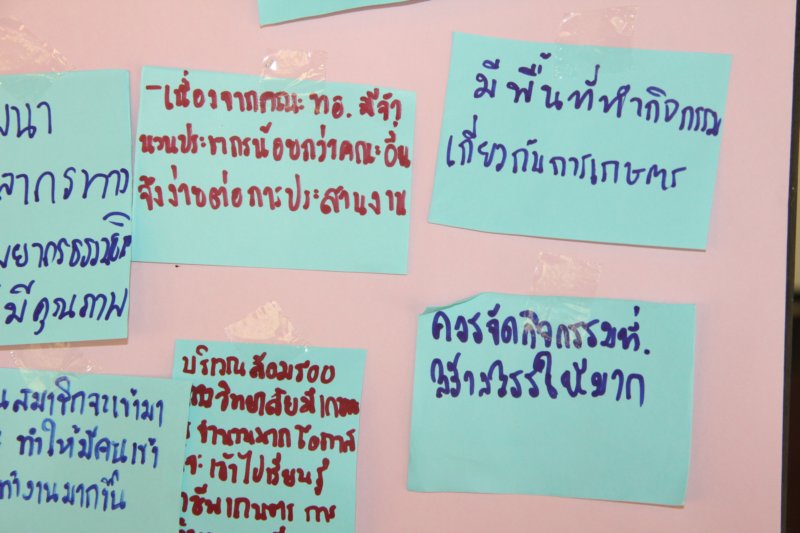 ฒนา
ลากรทาง
พยากรธรรมชาติ
มีคุณภาพ
-เนื่องจากคณะ ทธ. มีจำ
นวนประชากรน้อยกว่าคณะอื่น
จึงง่ายต่อการประสานงาน
มีพื้นที่ทำกิจกรรม
เกี่ยวกับการเกษตร
สมาชิกจะเข้ามา
ทำให้มีคนเข้า
ทำงานมากขึ้น
บริเวณล้อมรอบ
วิทยาลัยมีเกษตร
ชำนาญมาก โอกาส
จะเข้าไปเรียนรู้
อาชีพเกษตร การ
ควรจัดกิจกรรมที่.
สร้างสรรค์ให้มาก